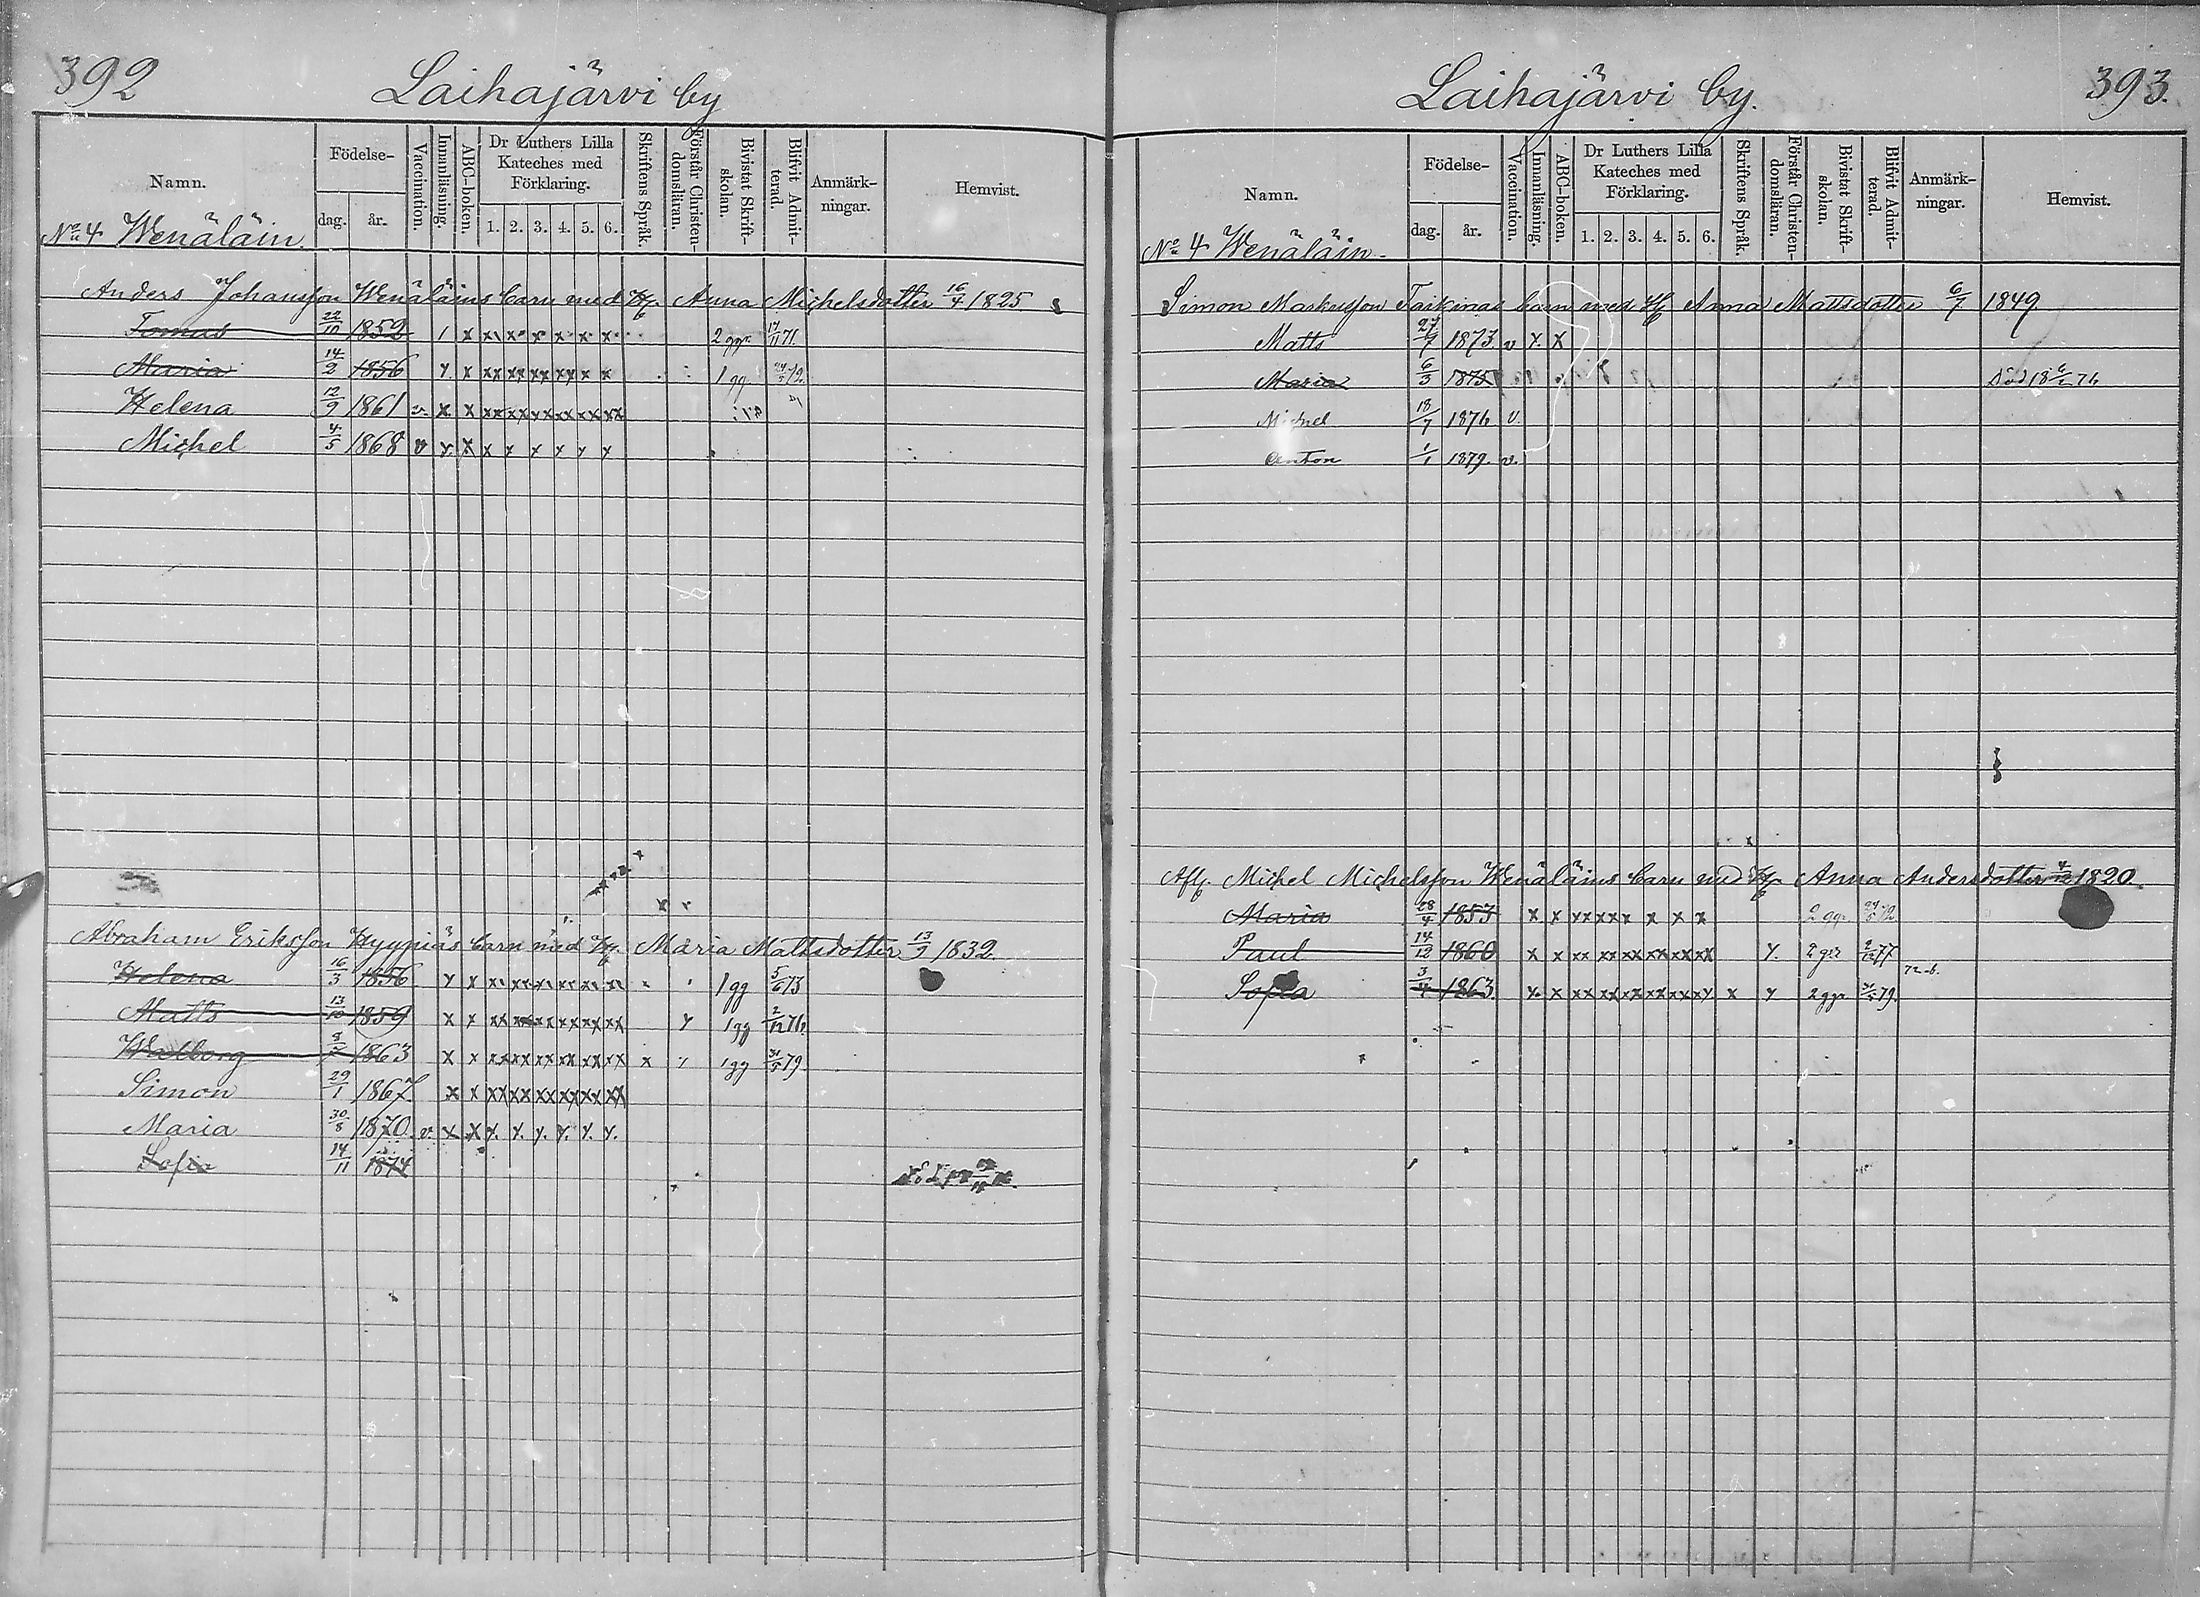 392
Laihajärvi by
Namn. Födelse- dag. år. Vaccination. Innanläsning. ABC-boken. Dr Luthers Lilla Kateches med Förklaring. 1. 2. 3. 4. 5. 6. Skriftens Språk. Förstår Christen-domsläran. Bivistat Skrift-skolan. Blifvit Admit-terad. Anmärk-ningar. Hemvist.
No 4 Wenäläin
Anders Johansson Wenäläins barn med Anna Michelsdotter 16/4 1825
Tomas 22/10 1852 1 x x x x x x x 2 ggr 17/11 71
Maria 14/2 1856 x x xx xx xx xx x x 1 gg
Helena 12/9 1861 v. x x xx xx xx xx xx xx
Michel 4/5 1868 v x x x x x x x x
Abraham Eriksson Hyypiäs barn med Maria Mattsdotter 13/9 1832
Helena 16/3 1856 x x xx xx xx xx xx xx 1 gg 5/6 73
Matts 13/10 1859 x x xx xx xx xx xx xx y 1 gg 2/12 76
Walborg 1863 x x xx xx xx xx xx xx x 1 gg 31/5 79
Simon 29/1 1867 x x xx xx xx xx xx xx
Maria 30/8 1870 v. x x x x x x x x
Sofia 14/11 1874
393.
Laihajärvi by.
Namn. Födelse- dag. år. Vaccination. Innanläsning. ABC-boken. Dr Luthers Lilla Kateches med Förklaring. 1. 2. 3. 4. 5. 6. Skriftens Språk. Förstår Christen-domsläran. Bivistat Skrift-skolan. Blifvit Admit-terad. Anmärk-ningar. Hemvist.
No 4 Wenäläin
Simon Markusson Tarkinas barn med Anna Mattsdotter 6/7 1849
Matts 27/7 1873 v x x
Maria 6/3 1875 Död
Michel 18/7 1876 v.
Anton 1/1 1879. v.
Afl. Michel Michelsson Wenäläins barn med Anna Andersdotter 1820
Maria 28/4 1853 x x xx xx x x x x 2 ggr
Paul 14/12 1860 x x xx xx xx xx xx xx y. 2 ggr 2/12 77
Sofia 3/4 1863 x x xx xx xx xx xx xx x y 2 ggr 31/5 79